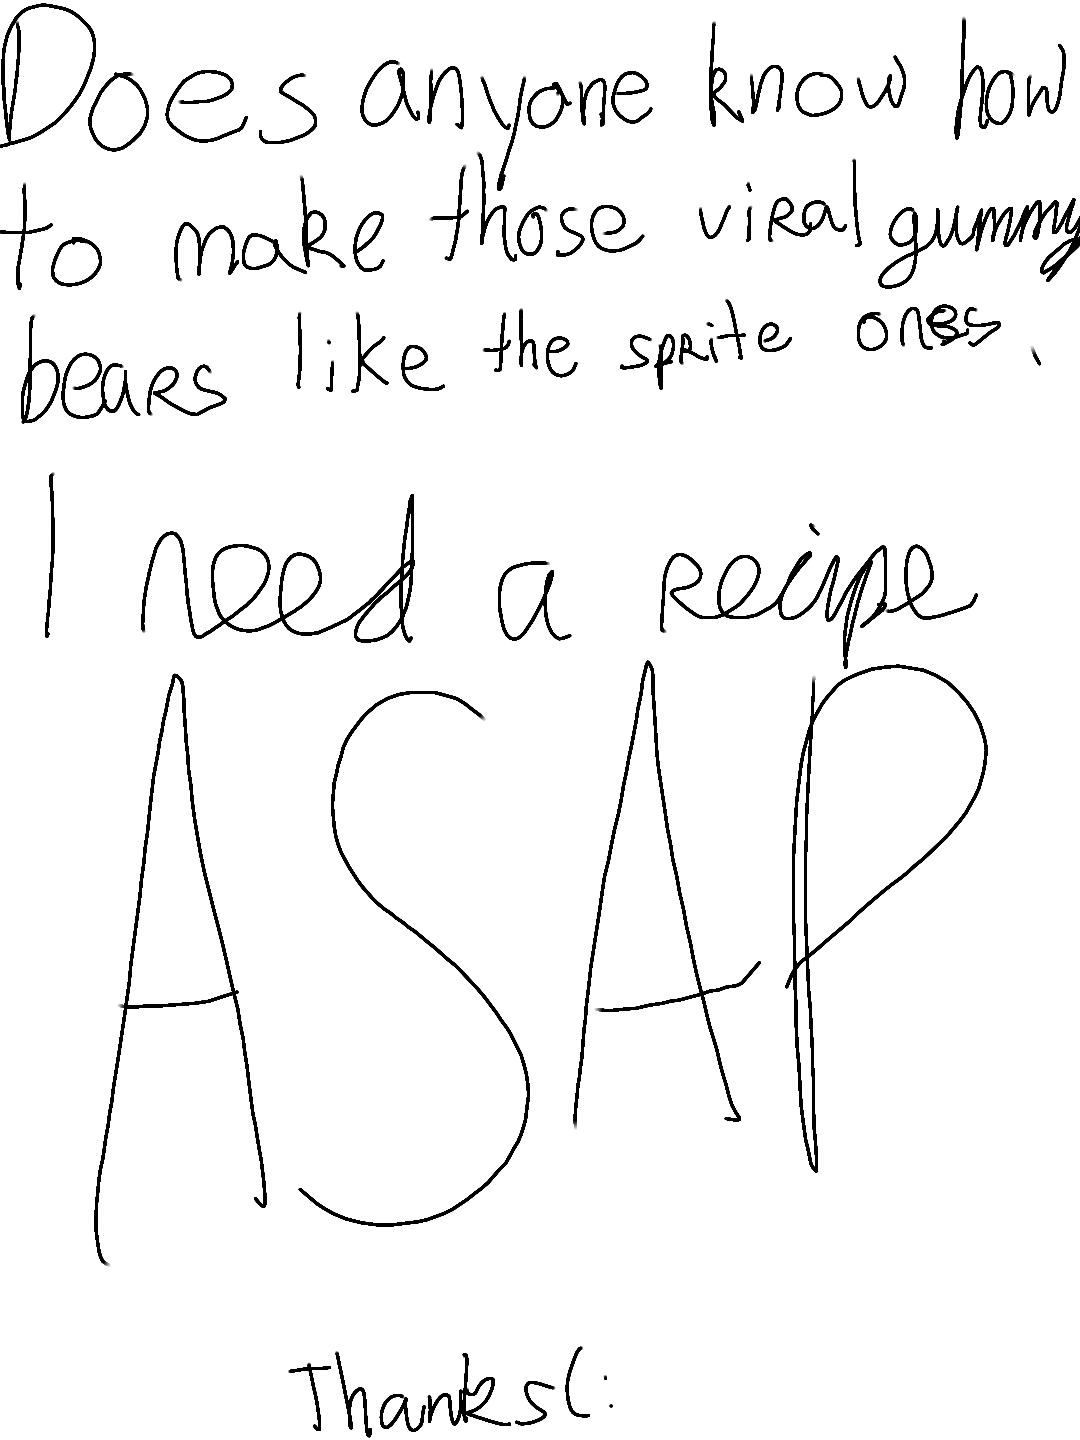 Does anyone know how
to make those viral gummy
bears like the sprite ones.
I need a recipe
ASAP
Thanks(: